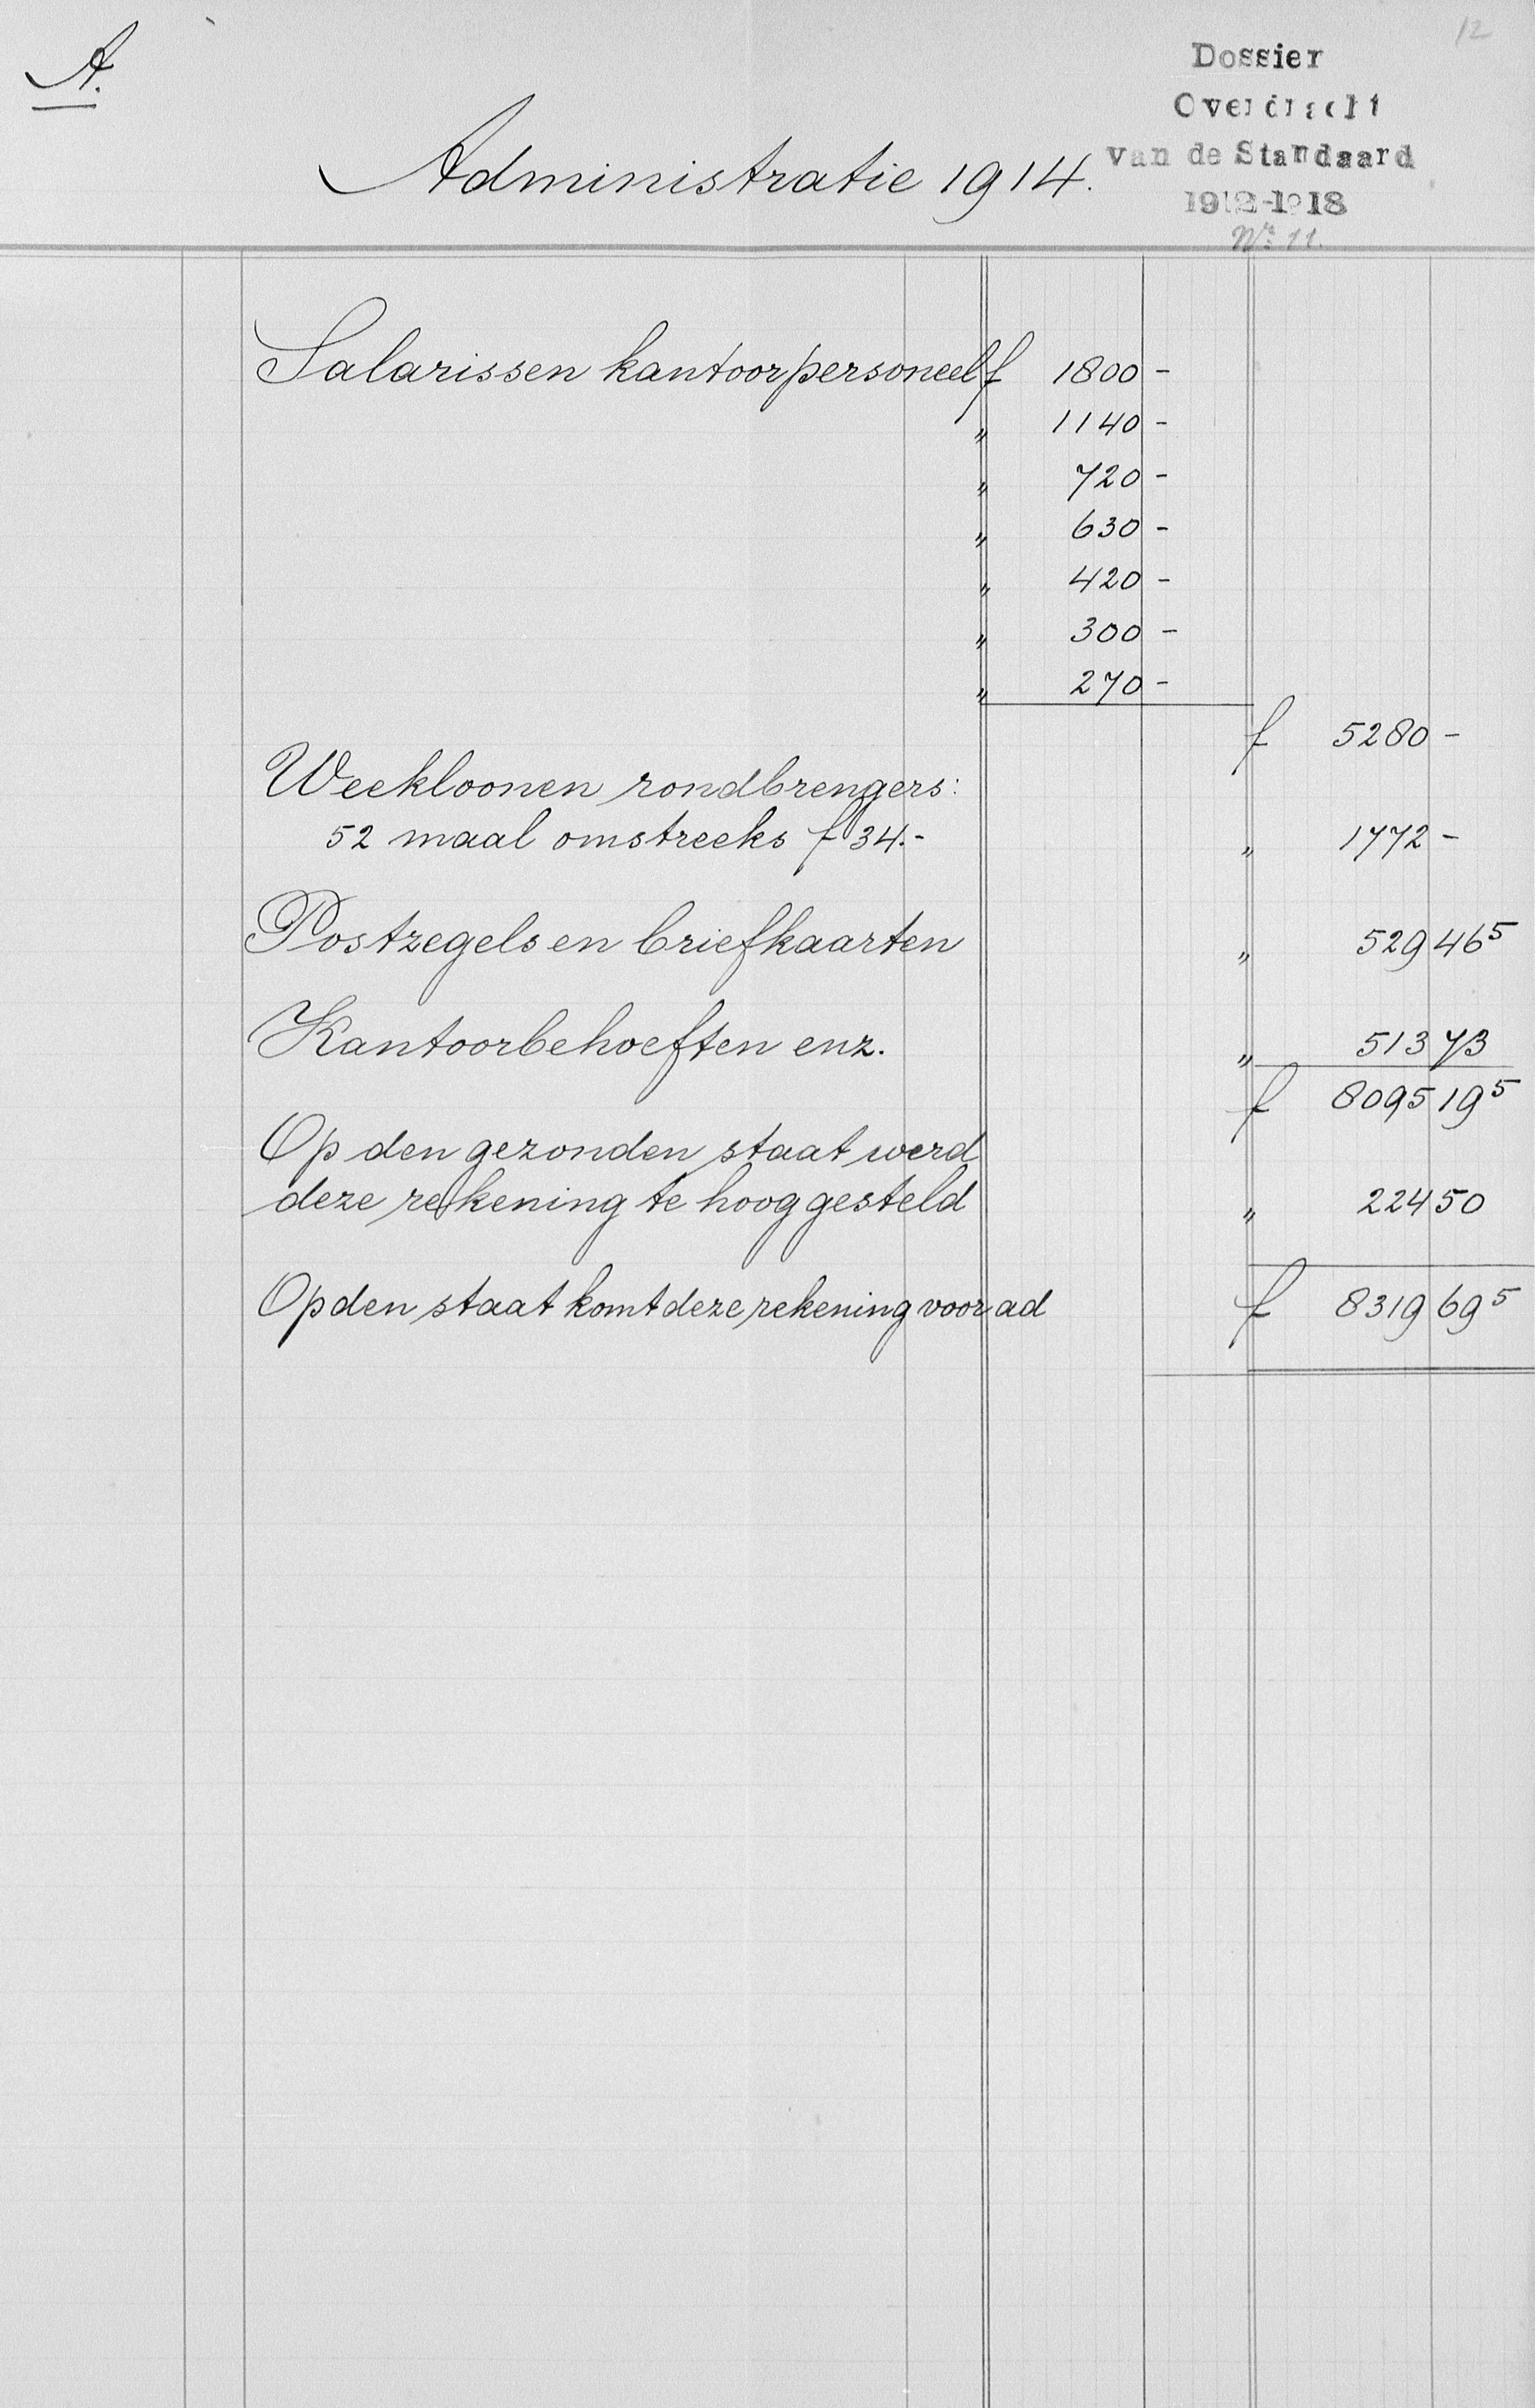 12
A.
Dossier
Overdracht
van de Standaard
1912-1918
No. 11.
Administratie 1914.
Salarissen kantoorpersoneel f 1800 -
" 1140 -
" 720 -
" 630 -
" 420 -
" 300 -
" 270 -
f 5280 -
Weekloonen rondbrengers:
52 maal omstreeks f 34.- " 1772 -
Postzegels en briefkaarten " 529 46⁵
Kantoorbehoeften enz. " 513 73
f 8095 19⁵
Op den gezonden staat werd
deze rekening te hoog gesteld " 224 50
Op den staat komt deze rekening voor ad f 8319 69⁵